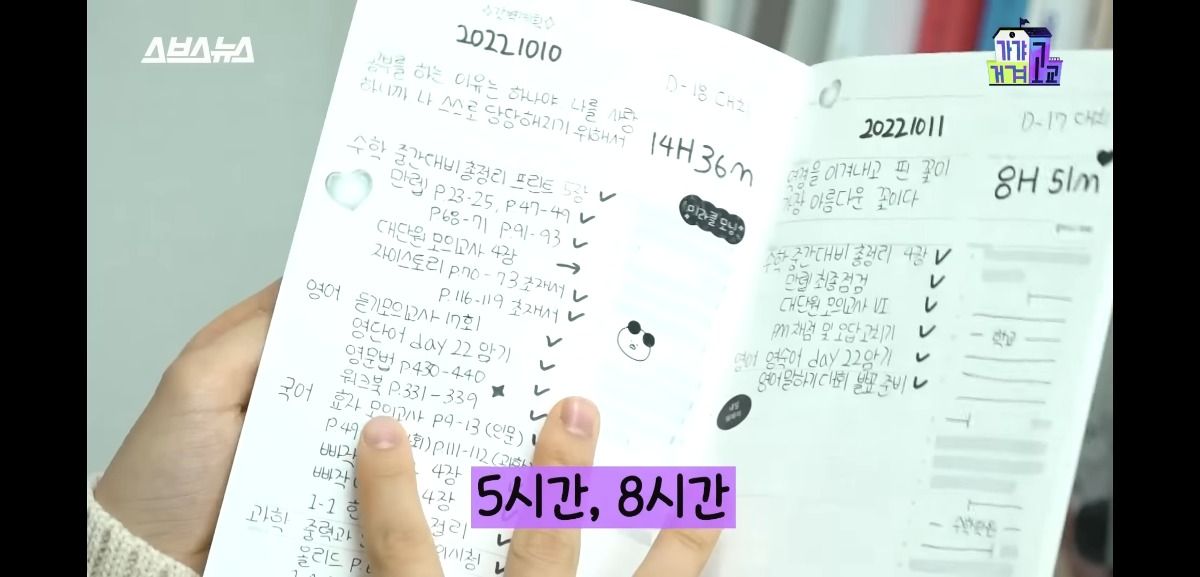 스브스뉴스
가갸거겨고교
20221010
D-18
공부를 하는 이유는 하나야. 나를 사랑
하니까 나 스스로 당당해지기 위해서
14H 36m
수학 중간대비 총정리 프린트 5장
만렙 p.23-25, p.47-49
p.68-71 p.91-93
대단원 모의고사 4장
자이스토리 p.70-73 초재서
p.116-119 초재서
미라클 모닝
영어 듣기모의고사 17회
영단어 day 22 암기
영문법 p.430-440
워크북 p.331-339
국어 모의고사 p.9-13 (인문)
p.49 p.111-112
빠작 4장
빠작 4장
1-1
과학 중력과
올리드
20221011
D-17
역경을 이겨내고 핀 꽃이
가장 아름다운 꽃이다
8H 51m
수학 중간대비 총정리 4장
만렙 최종점검
대단원 모의고사 VI
pm 채점 및 오답고치기
영어 영숙어 day 22 암기
영어말하기대회 발표 준비
학교
수학학원
5시간, 8시간